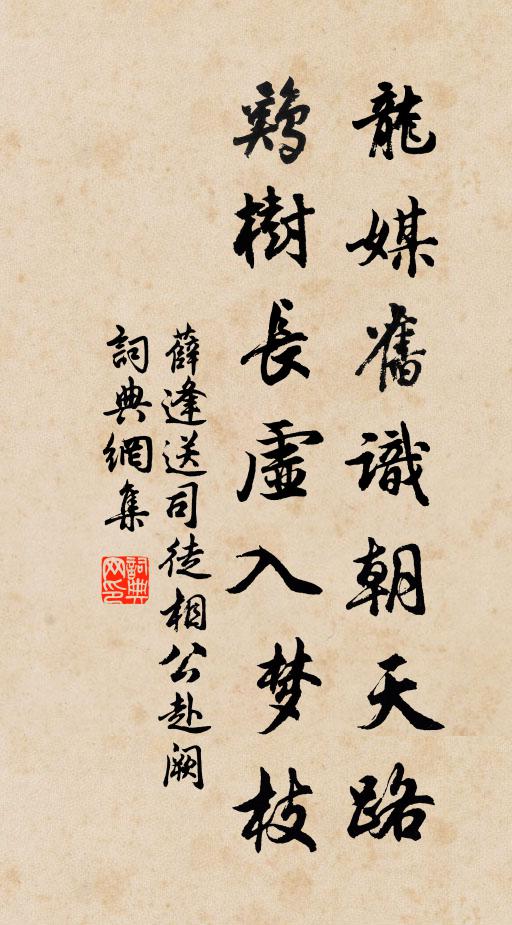 龍媒舊識朝天路
鷄樹長虛入梦枝
薛逢送司徒相公赴阙
詞典網集
詞典网印